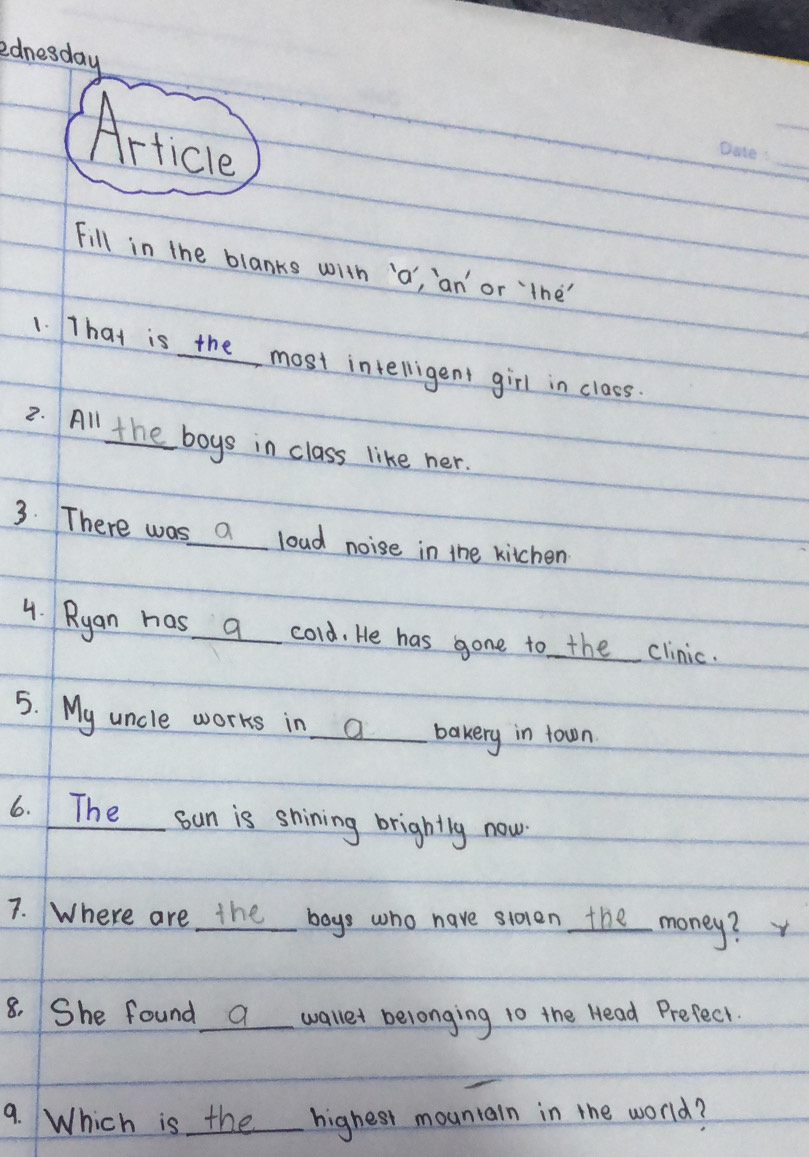 ednesday
Article
Date :
Fill in the blanks with 'a', 'an' or 'the'
1. That is the most intelligent girl in class.
2. All the boys in class like her.
3. There was a loud noise in the kitchen
4. Ryan has a cold. He has gone to the clinic.
5. My uncle works in a bakery in town.
6. The sun is shining brightly now.
7. Where are the boys who have stolen the money?
8. She found a wallet belonging to the Head Prefect.
9. Which is the highest mountain in the world?